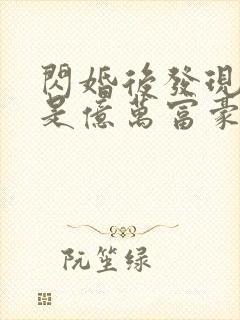 閃婚後發現
是億萬富豪
阮笙绿